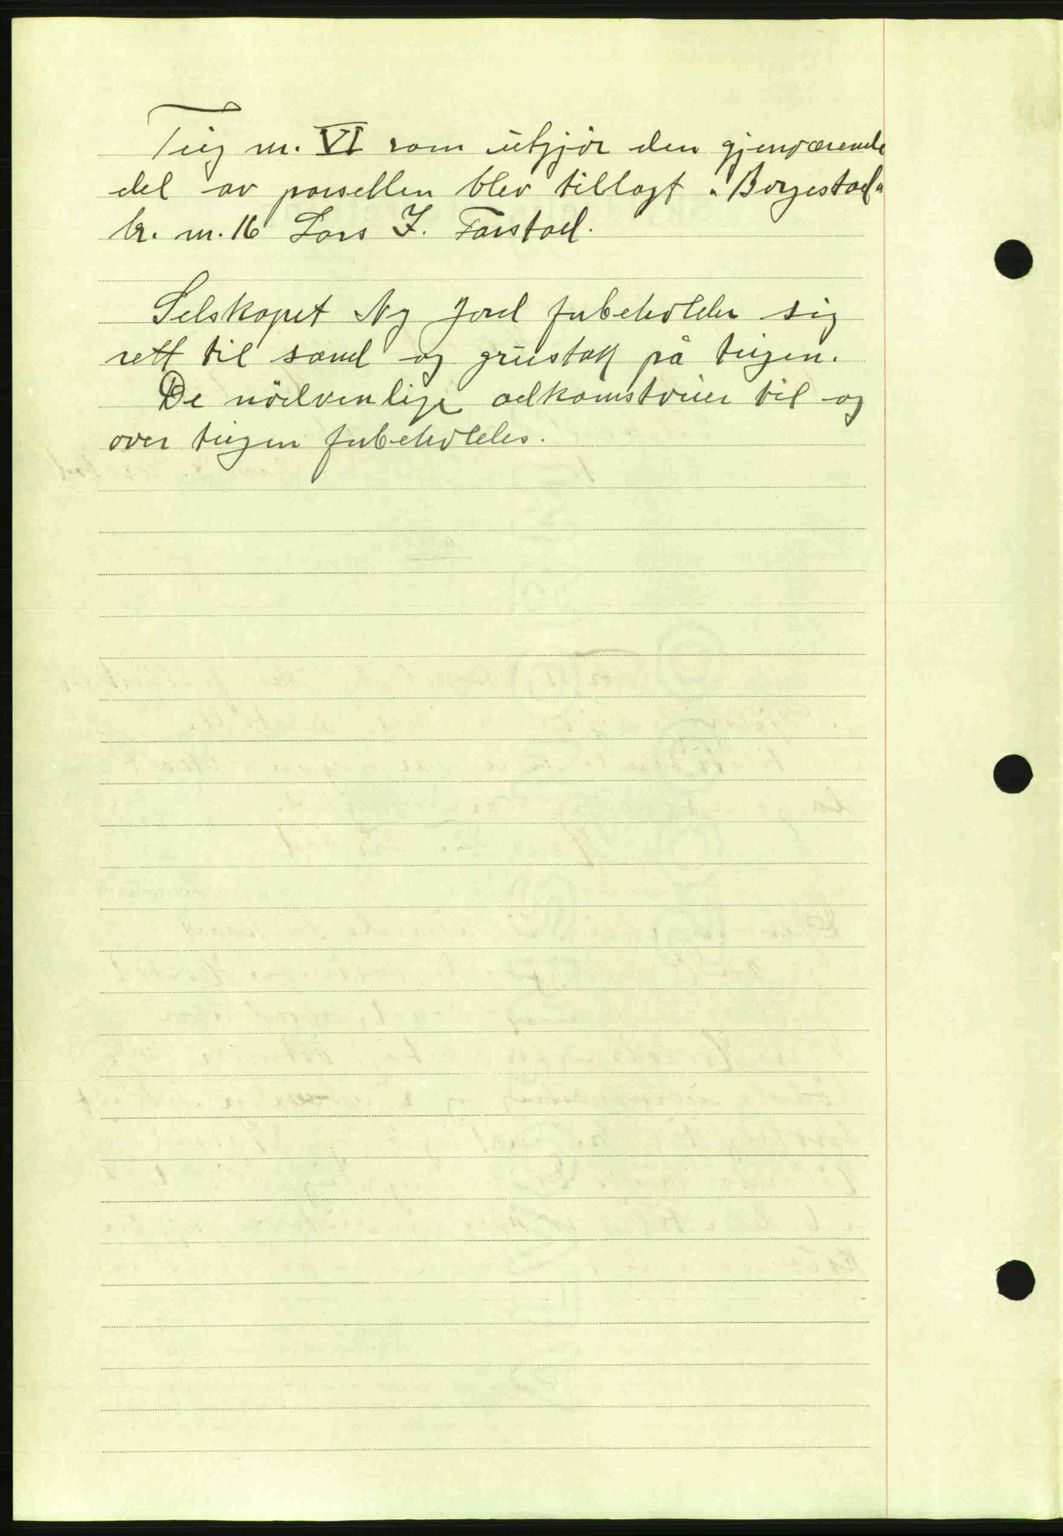 Teig nr. VI som utgjör den gjenværende
del av parsellen blev tillagt "Borgestad"
br. nr. 16 Lars I. Farstad.
Selskapet Ny Jord forbeholder sig
rett til sand og grustak på teigen.
De nödvendige adkomstveier til og
over teigen forbeholdes.